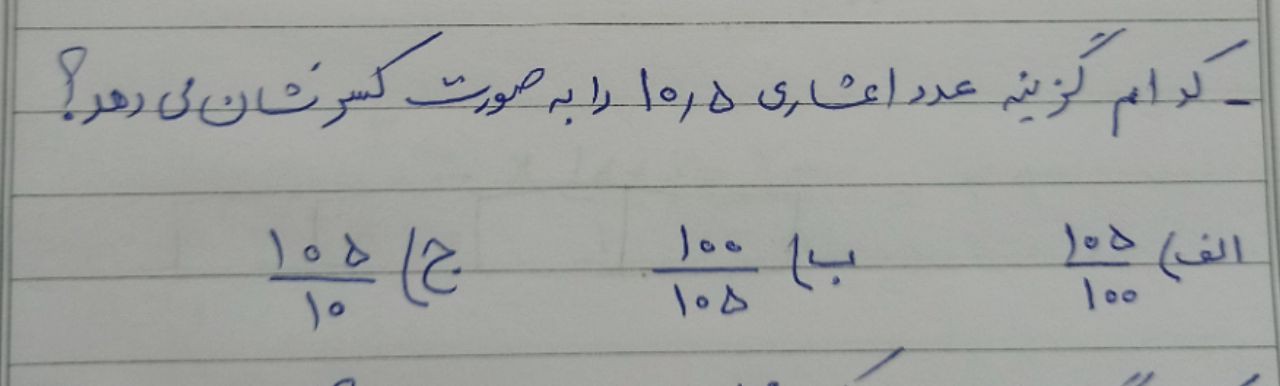 - کدام گزینه عدد اعشاری ۱۰٫۵ را به صورت کسر نشان می دهد؟
الف) ۱۰۵/۱۰۰ ب) ۱۰۰/۱۰۵ ج) ۱۰۵/۱۰